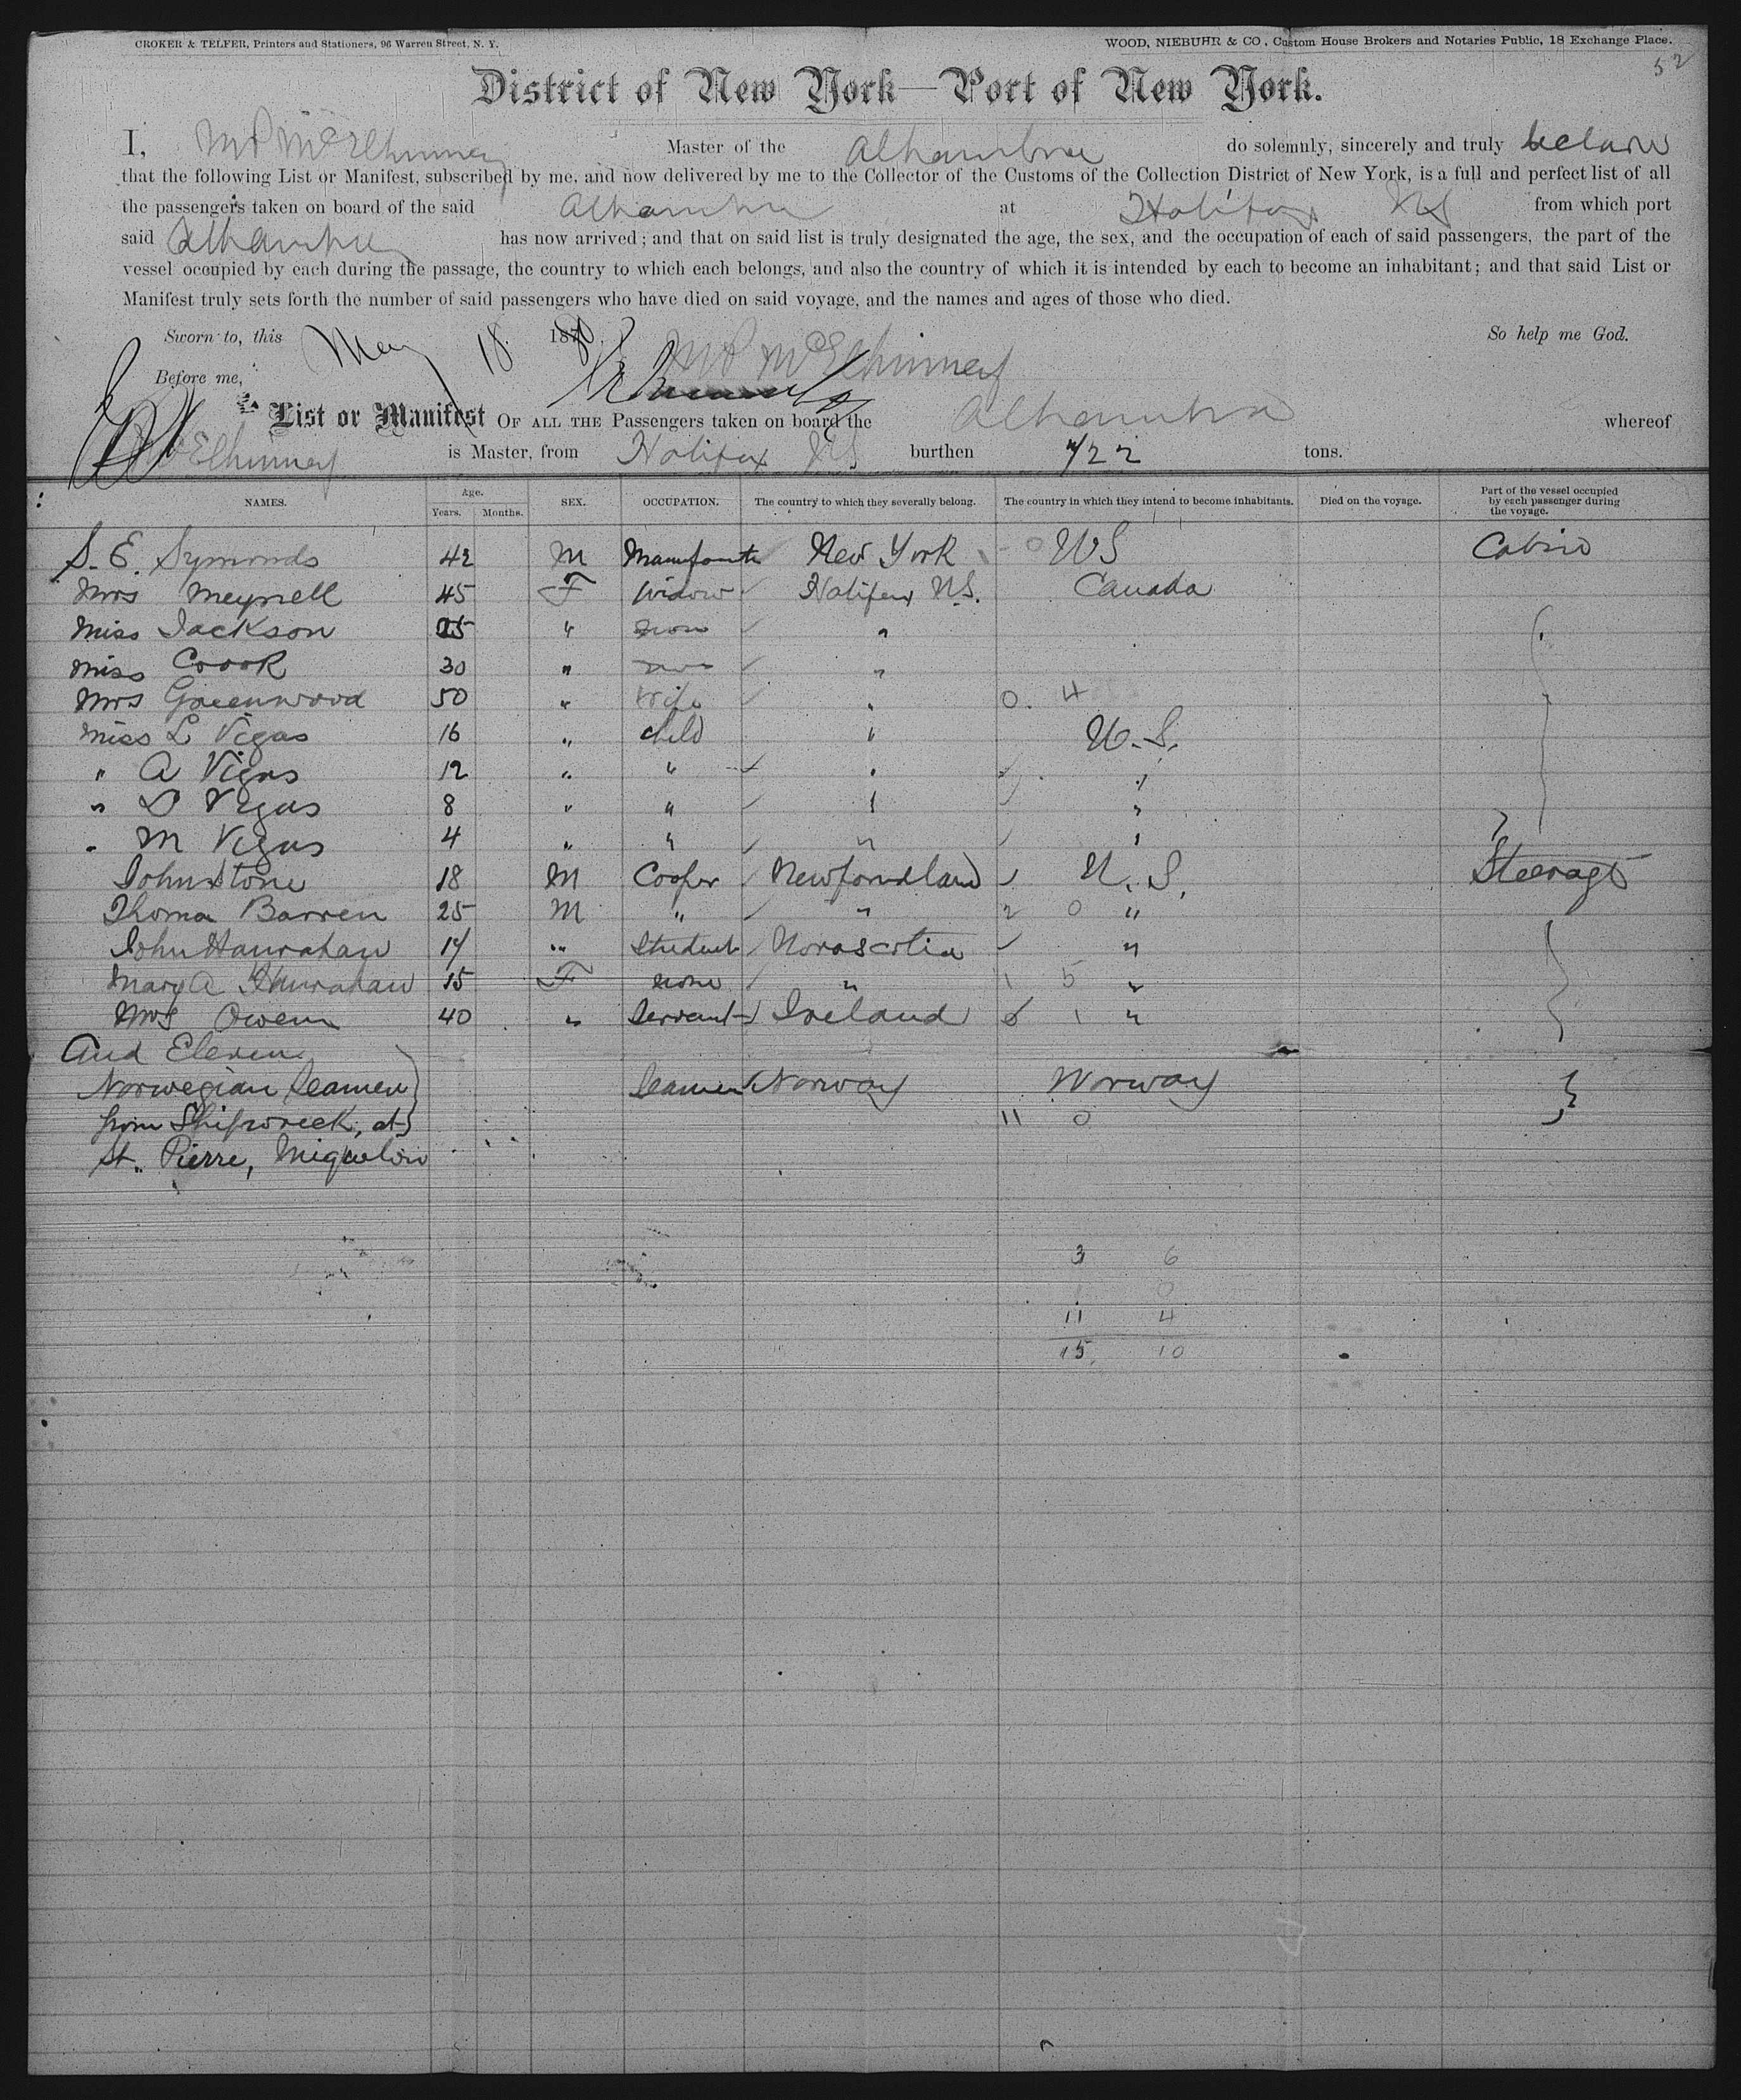 CROKER & TELFER, Printers and Stationers, 96 Warren Street, N. Y.
WOOD, NIEBUHR & CO, Custom House Brokers and Notaries Public, 18 Exchange Place.
52
District of New York—Port of New York.
I, M P McElhinney Master of the Alhambra do solemnly, sincerely and truly declare
that the following List or Manifest, subscribed by me, and now delivered by me to the Collector of the Customs of the Collection District of New York, is a full and perfect list of all
the passengers taken on board of the said Alhambra at Halifax NS from which port
said Alhambra has now arrived; and that on said list is truly designated the age, the sex, and the occupation of each of said passengers, the part of the
vessel occupied by each during the passage, the country to which each belongs, and also the country of which it is intended by each to become an inhabitant; and that said List or
Manifest truly sets forth the number of said passengers who have died on said voyage, and the names and ages of those who died.
Sworn to, this May 18 1880. So help me God.
M P McElhinney
Before me,
List or Manifest OF ALL THE Passengers taken on board the Alhambra whereof
McElhinney is Master, from Halifax NS burthen 722 tons.
NAMES. Age. Years. Months. SEX. OCCUPATION. The country to which they severally belong. The country in which they intend to become inhabitants. Died on the voyage. Part of the vessel occupied by each passenger during the voyage.
S. E. Symonds 42 M New York 0 US Cabin
Mrs Meynell 45 F Widow Halifax N.S. Canada
Miss Jackson 25 " none "
Miss Coook 30 " "
Mrs Greenwood 50 " Wife " 0. 4
Miss L Vigas 16 " child " U.S.
" A Vigas 12 " " " "
" D Vigas 8 " " " "
" M Vigas 4 " " " "
John Stone 18 M Cooper Newfoundland U.S. Steerage
Thoma Barren 25 M " " 2 0 "
John Hanrahan 17 " Student Novascotia "
Mary A Hanrahan 15 F none " 1 5 "
Mrs Owen 40 " Servant Ireland 1 "
And Eleven
Norwegian Seamen Seamen Norway Norway
from Shipwreck, at 11 0
St. Pierre, Miquelon
3 6
0
11 4
15 10